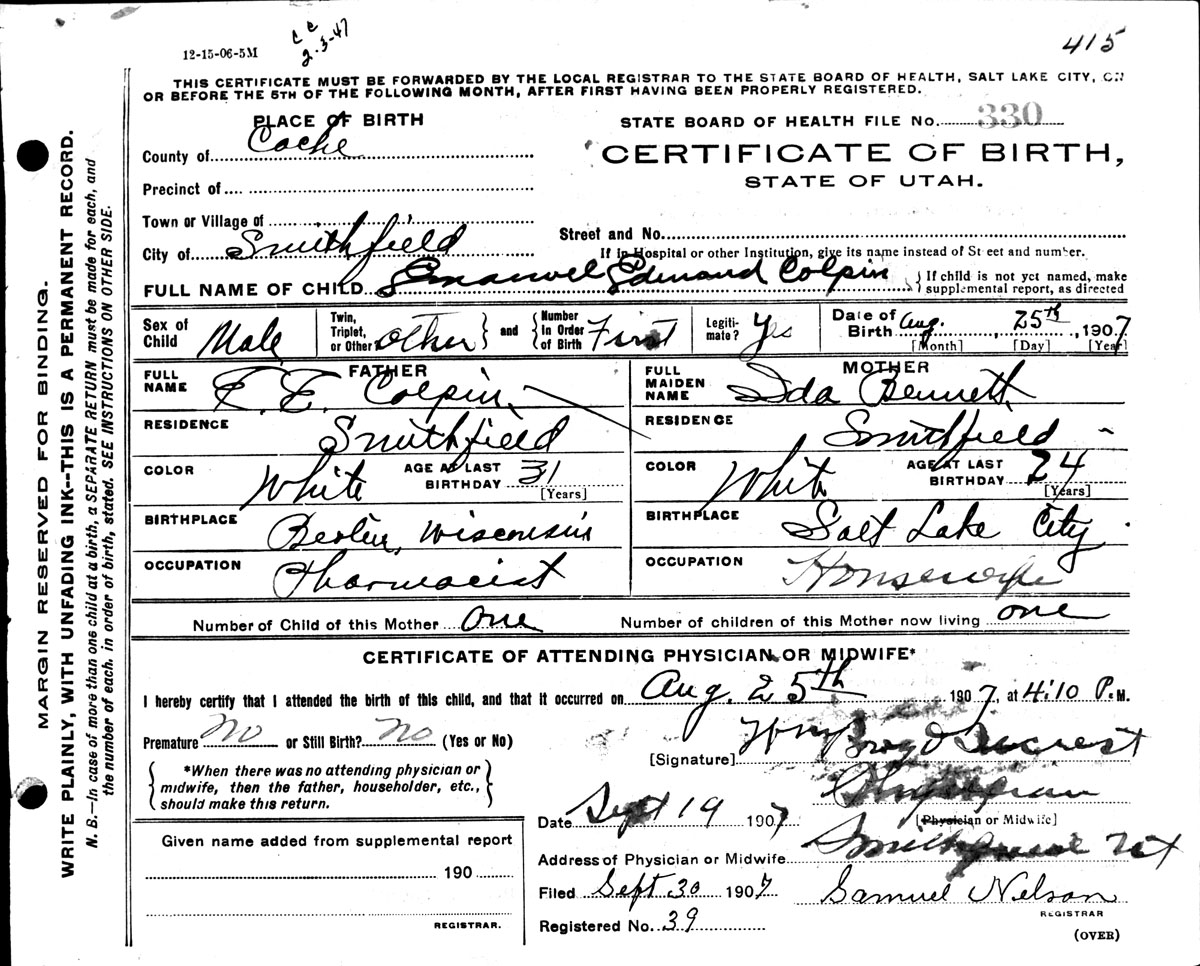 12-15-06-5M
c c
2-3-47
415
THIS CERTIFICATE MUST BE FORWARDED BY THE LOCAL REGISTRAR TO THE STATE BOARD OF HEALTH, SALT LAKE CITY, ON
OR BEFORE THE 5TH OF THE FOLLOWING MONTH, AFTER FIRST HAVING BEEN PROPERLY REGISTERED.
PLACE OF BIRTH
STATE BOARD OF HEALTH FILE No. 330
County of Cache
CERTIFICATE OF BIRTH,
STATE OF UTAH.
Precinct of
Town or Village of
Street and No.
City of Smithfield
If in Hospital or other Institution, give its name instead of Street and number.
FULL NAME OF CHILD Emanuel Edmand Colpin { If child is not yet named, make supplemental report, as directed
Sex of Child Male
Twin, Triplet, or Other other } and { Number in Order of Birth First
Legitimate? Yes
Date of Birth Aug. 25th, 1907
[Month] [Day] [Year]
FATHER
FULL NAME E. E. Colpin
MOTHER
FULL MAIDEN NAME Ida Bennett
RESIDENCE Smithfield
RESIDENCE Smithfield
COLOR White AGE AT LAST BIRTHDAY 31 [Years]
COLOR White AGE AT LAST BIRTHDAY 24 [Years]
BIRTHPLACE Berlin, Wisconsin
BIRTHPLACE Salt Lake City
OCCUPATION Pharmacist
OCCUPATION Housewife
Number of Child of this Mother one
Number of children of this Mother now living one
CERTIFICATE OF ATTENDING PHYSICIAN OR MIDWIFE*
I hereby certify that I attended the birth of this child, and that it occurred on Aug. 25th 1907, at 4:10 P.M.
Premature No or Still Birth? No (Yes or No)
{ *When there was no attending physician or midwife, then the father, householder, etc., should make this return. }
[Signature]
Physician
[Physician or Midwife]
Date Sept 19 1907
Address of Physician or Midwife Smithfield Ut
Filed Sept 30 1907
Samuel Nelson
REGISTRAR
Registered No. 39
(OVER)
Given name added from supplemental report
190
REGISTRAR.
MARGIN RESERVED FOR BINDING.
WRITE PLAINLY, WITH UNFADING INK--THIS IS A PERMANENT RECORD.
N. B.—In case of more than one child at a birth, a SEPARATE RETURN must be made for each, and
the number of each, in order of birth, stated. SEE INSTRUCTIONS ON OTHER SIDE.